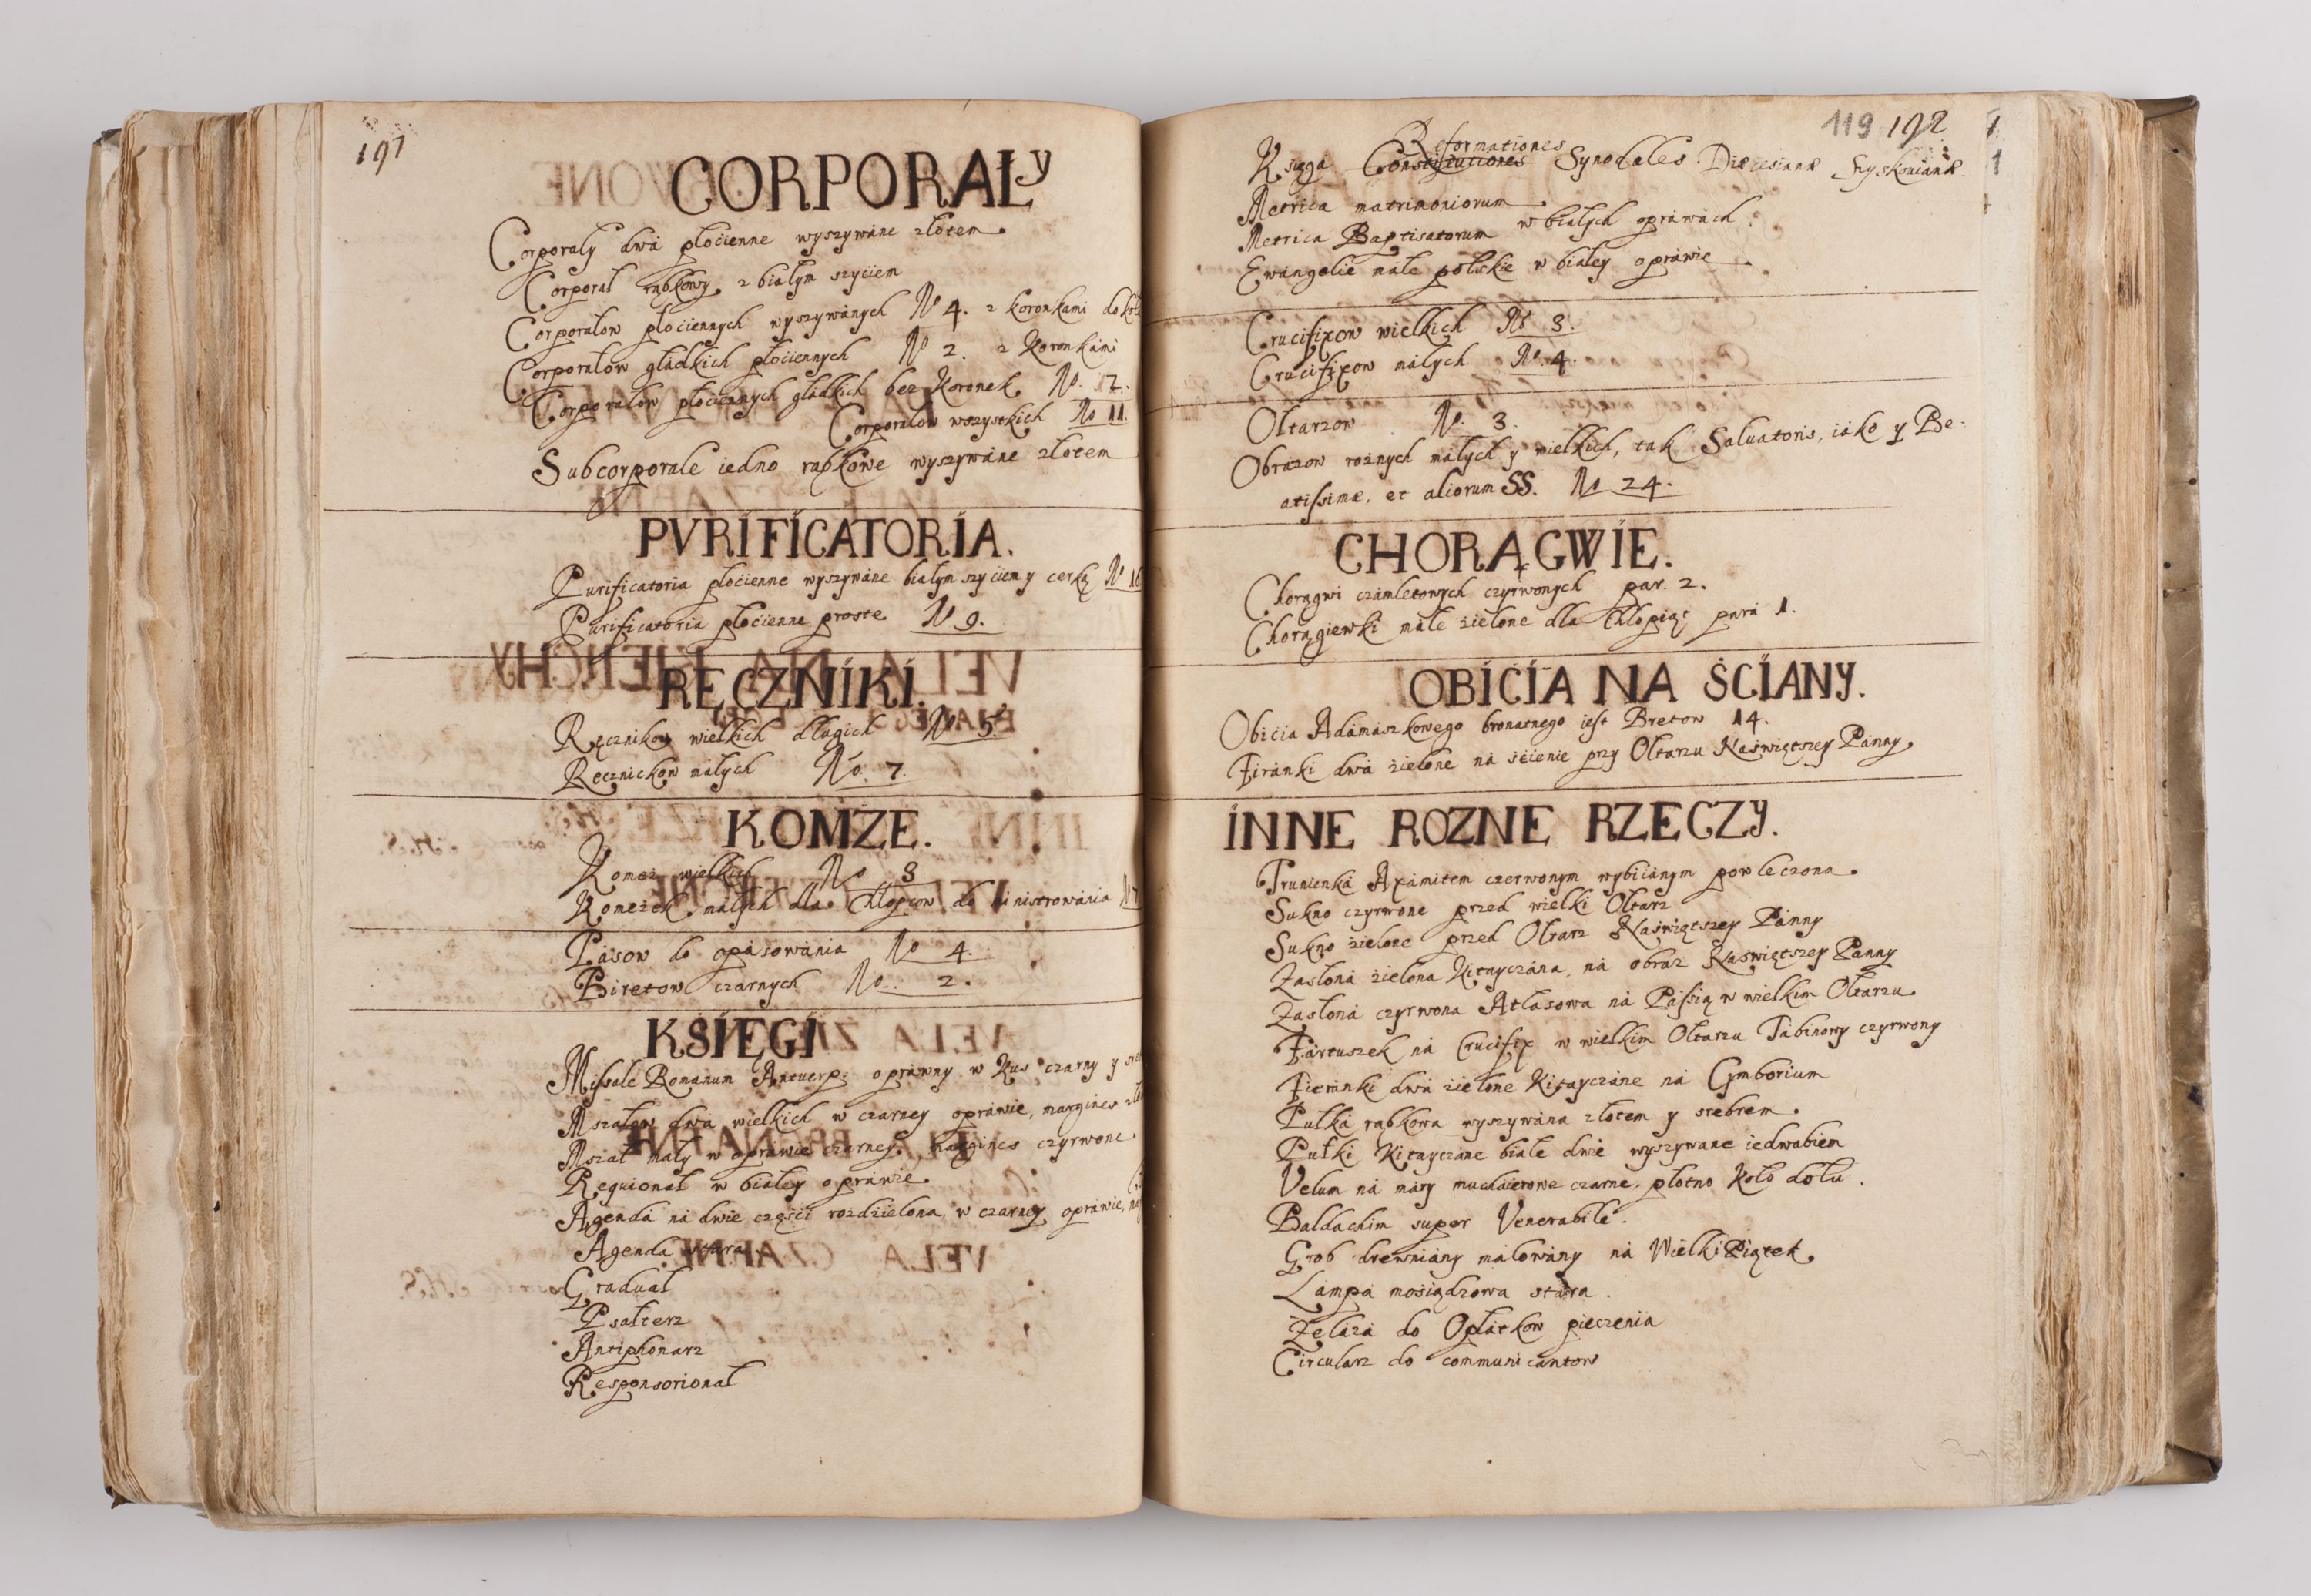 191
CORPORAŁy
Corporały dwá płoćienne wyszywáne złotem.
Corporał rąbkowy z białym szyciem
Corporałow płoćiennych wyszywánych No 4. z koronkami do koł
Corporałow głádkich płoćiennych No 2. z Koronkámi
Corporałow płoćiennych głádkich bez Koronek No. 2.
Corporałow wszystkich No 11.
Subcorporale iedno rąbkowe wyszywáne złotem
PVRIFICATORIA.
Purificatoria płoćienne wyszywáne białym szyćiem y cerką No 16
Purificatoria płoćienne proste No 9.
RĘCZNIKI.
Ręcznikow wielkich długich No 5.
Ręcznickow máłych No. 7.
KOMŻE.
Komeż wielkich No 3
Komeżek máłych dla Chłopcow do ministrowánia No 7
Pásow do opásowánia No 4.
Biretow czarnych No. 2.
KSIĘGI
Missale Romanum Antuerp: opráwny w Kus czarny y
Mszałow dwa wielkich w czarney opráwie, margines
Mszał máły w opráwie czarney, margines czyrwone
Requionał w białey opráwie.
Agendá ná dwie częśći rozdźielona, w czarney opráwie,
Agenda stara.
Graduał
Psałterz
Antiphonarz
Responsorionał
119 192
Reformationes
Księgá Constitutiones Synodales Diæcesianæ
Metrica matrimoniorum
Metrica Baptisatorum w białych opráwách.
Ewángelie máłe polskie w białey opráwie.
Crucifixow wielkich No 3.
Crucifixow máłych No. 4.
Ołtarzow No. 3.
Obrázow rożnych máłych y wielkich, ták Saluatoris, iáko y Be-
atissimæ, et aliorum SS. No 24.
CHORĄGWIE.
Chorągwi czámletowych czyrwonych par. 2.
Chorągiewki máłe źielone dla Chłopiąt pará 1.
OBICIA NA ŚCIANY.
Obićia Adámaszkowego brunatnego iest Bretow 14.
Firánki dwá źielone ná śćienie przy Ołtarzu Naświętszey Pánny.
INNE ROZNE RZECZY.
Trunienká Axámitem czerwonym wybiiánym powleczona.
Sukno czyrwone przed wielki Ołtarz
Sukno źielone przed Ołtarz Naświętszey Pánny
Zasłoná źielona Kitayczána, ná obraz Naświętszey Pánny
Zasłoná czyrwona Atłasowa ná Pássią w wielkim Ołtarzu.
Fártuszek ná Crucifix w wielkim Ołtarzu Tábinowy czyrwony
Fieránki dwá źielone Kitayczáne ná Cymborium
Pułká rąbkowa wyszywána złotem y srebrem.
Pułki Kitayczáne białe dwie wyszywane iedwabiem
Velum ná máry muchaierowe czarne, płotno koło dołu.
Baldachim super Venerabile.
Grob drewniány málowány ná Wielki Piątek.
Lámpá mośiądzowa stára.
Żelázá do Opłátkow pieczenia
Circularz do communicántow